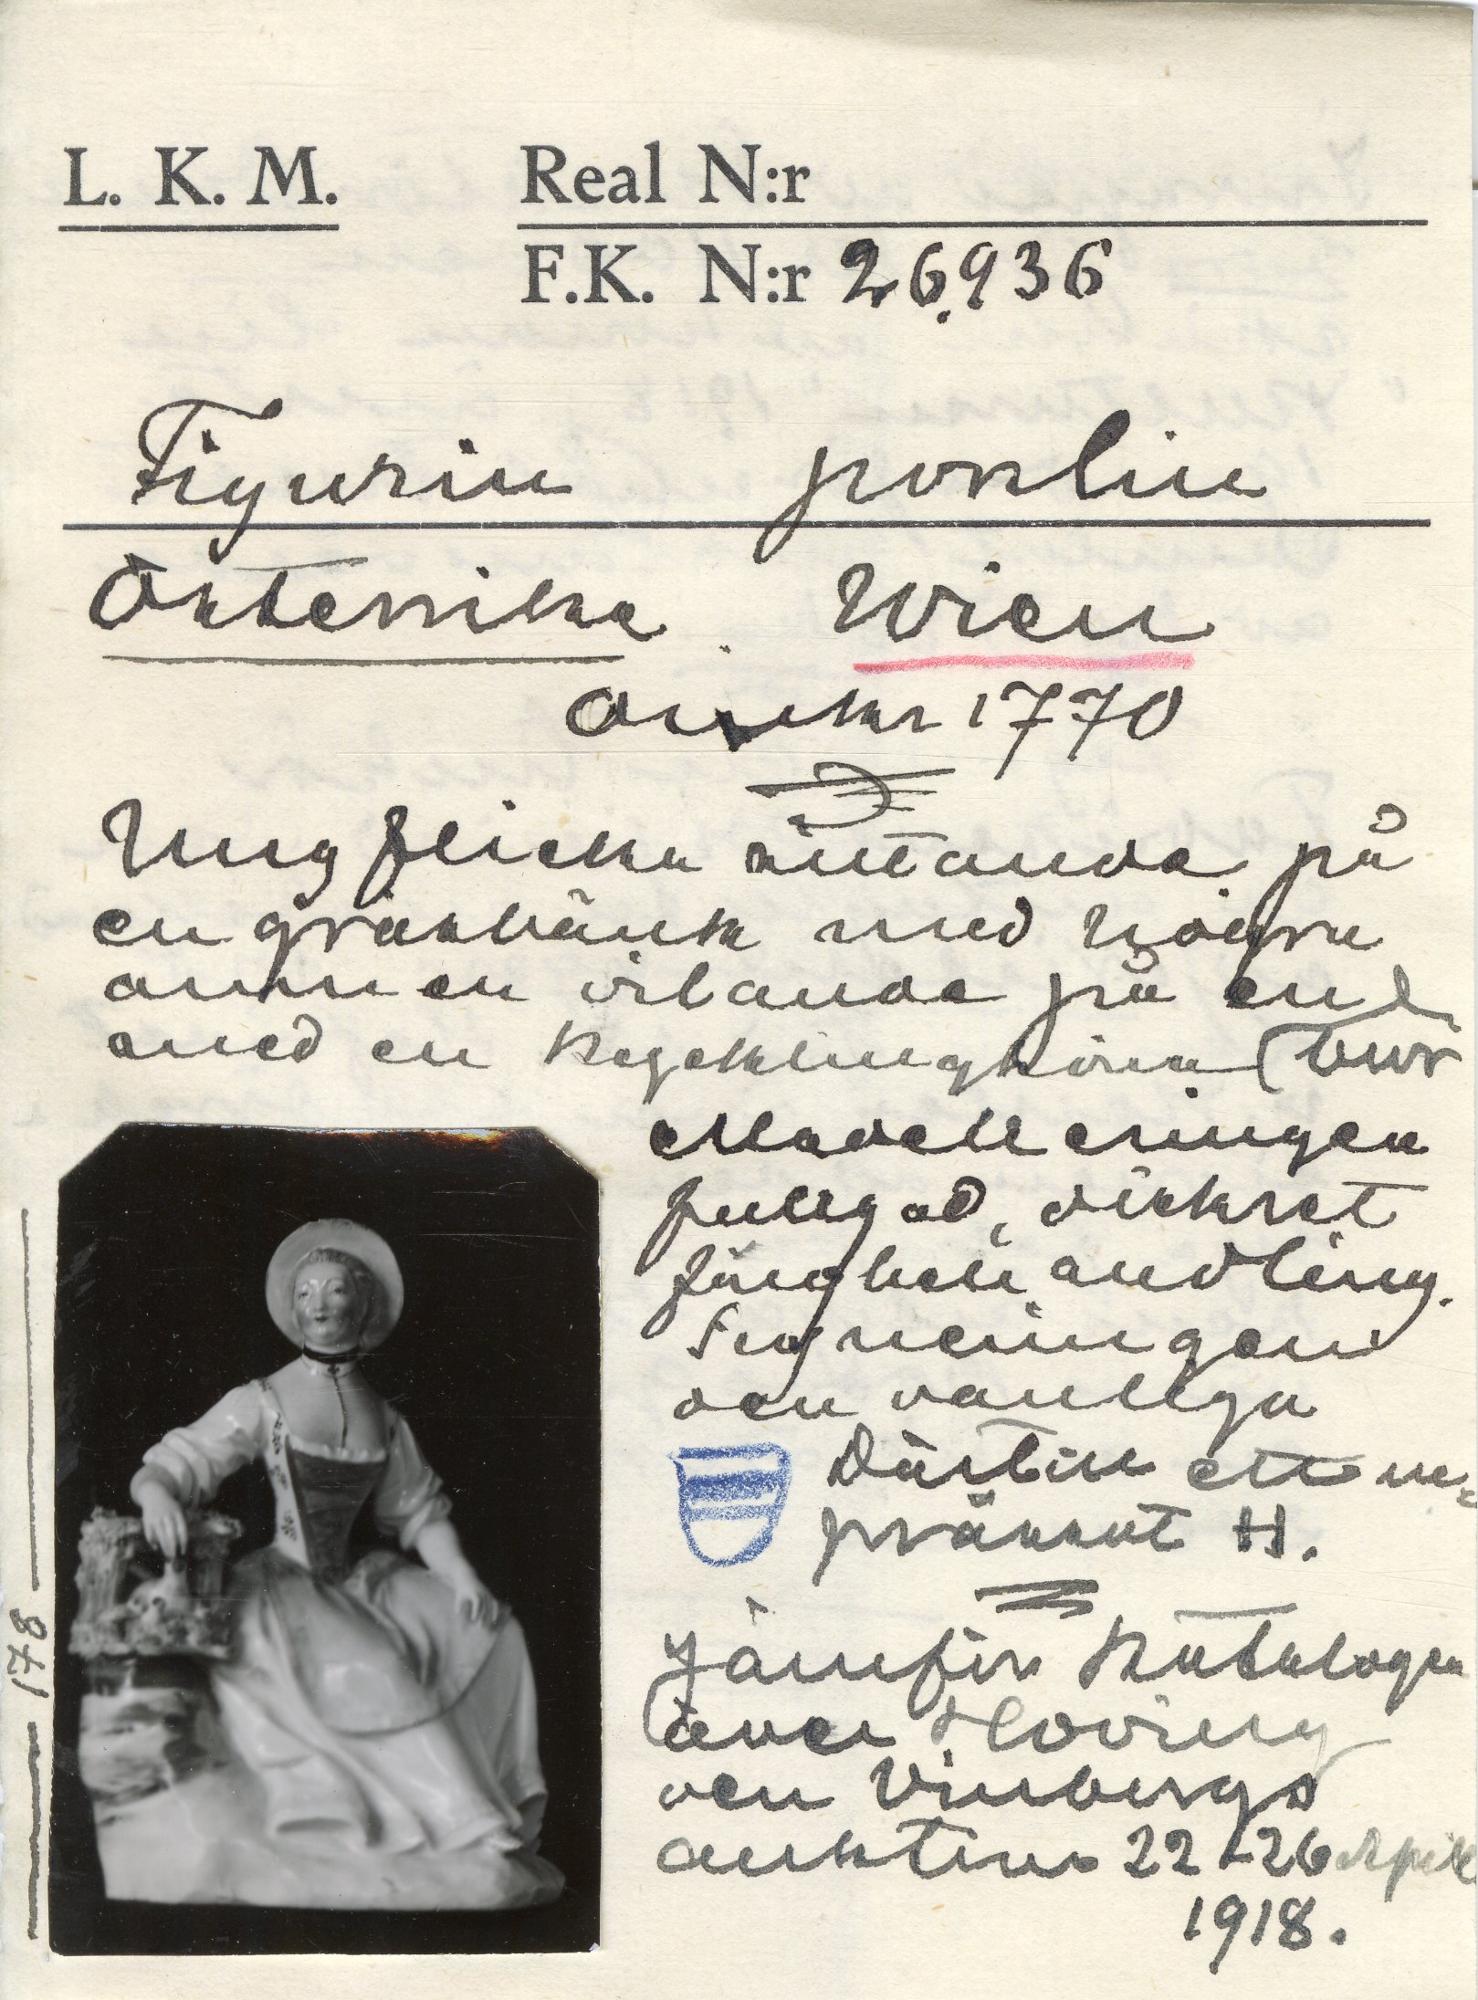 L. K. M.
Real N:r
F.K. N:r 26,936
Figurin porslin
Österrike Wien
Omkr 1770
Ung flicka sittande på
en gräsbänk med högra
armen vilande på en
med en kycklinghöna bur
Modelleringen
fullgod, diskret
färgbehandling.
Signeringen
den vanliga
Därtill ett in-
prässat H.
Jämför Katalogen
över Hoving
den Vinbergs
auktion 22-26 April
1918.
178